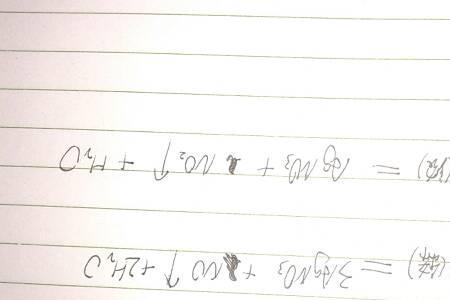 = 3AgNO₃ + NO↑ + 2H₂O
= AgNO₃ + NO₂↑ + H₂O